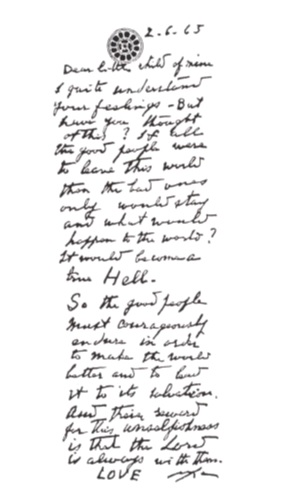 2-6-65
Dear little child of mine
I quite understand
your feelings - But
have you thought
of this? If all
the good people were
to leave this world
then the bad ones
only would stay
and what would
happen to the world?
It would become a
true Hell.
So the good people
must courageously
endure in order
to make the world
better and to lead
it to its salvation.
And their reward
for this unselfishness
is that the Lord
is always with them.
LOVE